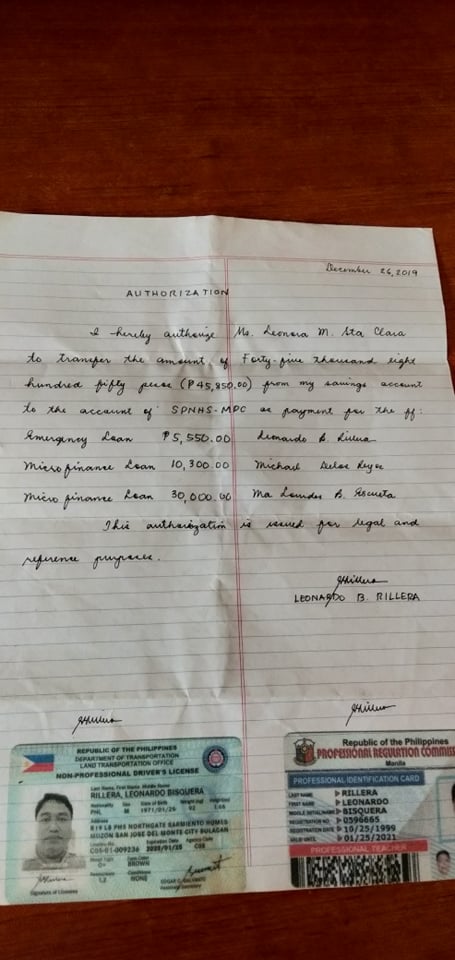 December 26, 2019
AUTHORIZATION
I hereby authorize Ms. Leonora M. Sta Clara
to transfer the amount of Forty-five thousand eight
hundred fifty pesos (₱45,850.00) from my savings account
to the account of SPNHS-MPC as payment for the ff:
Emergency Loan ₱5,550.00 Leonardo B. Rillera
Microfinance Loan 10,300.00 Michael Delos Reyes
Micro finance Loan 30,000.00 Ma Lourdes B. Escueta
This authorization is issued for legal and
reference purposes.
LEONARDO B. RILLERA
REPUBLIC OF THE PHILIPPINES
DEPARTMENT OF TRANSPORTATION
LAND TRANSPORTATION OFFICE
NON-PROFESSIONAL DRIVER'S LICENSE
Last Name, First Name, Middle Name
RILLERA, LEONARDO BISQUERA
Nationality Sex Date of Birth Weight (kg) Height(m)
PHL M 1971/01/25
Address
NORTHGATE SARMIENTO HOMES
MUZON SAN JOSE DEL MONTE CITY BULACAN
License No. Expiration Date Agency Code
C05-01-009236
Blood Type Eyes Color
O+ BROWN
Restrictions Conditions
1,2 NONE
Signature of Licensee
Republic of the Philippines
PROFESSIONAL REGULATION COMMISS
Manila
PROFESSIONAL IDENTIFICATION CARD
LAST NAME RILLERA
FIRST NAME LEONARDO
MIDDLE INITIAL/NAME BISQUERA
REGISTRATION NO. 0596665
REGISTRATION DATE 10/25/1999
VALID UNTIL 01/25/2021
PROFESSIONAL TEACHER